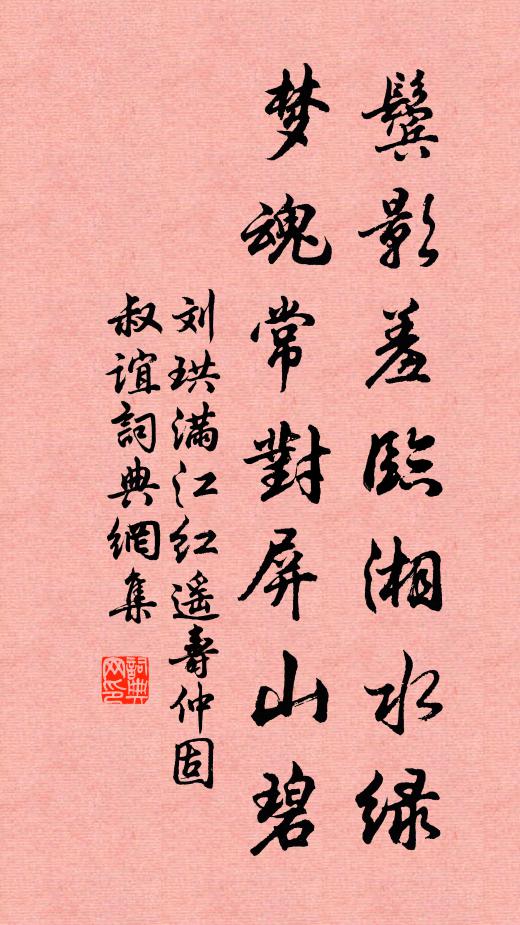 鬓影羞臨湘水緑
梦魂常對屏山碧
刘珙满江红遥壽仲固
叔谊詞典網集
詞典网印